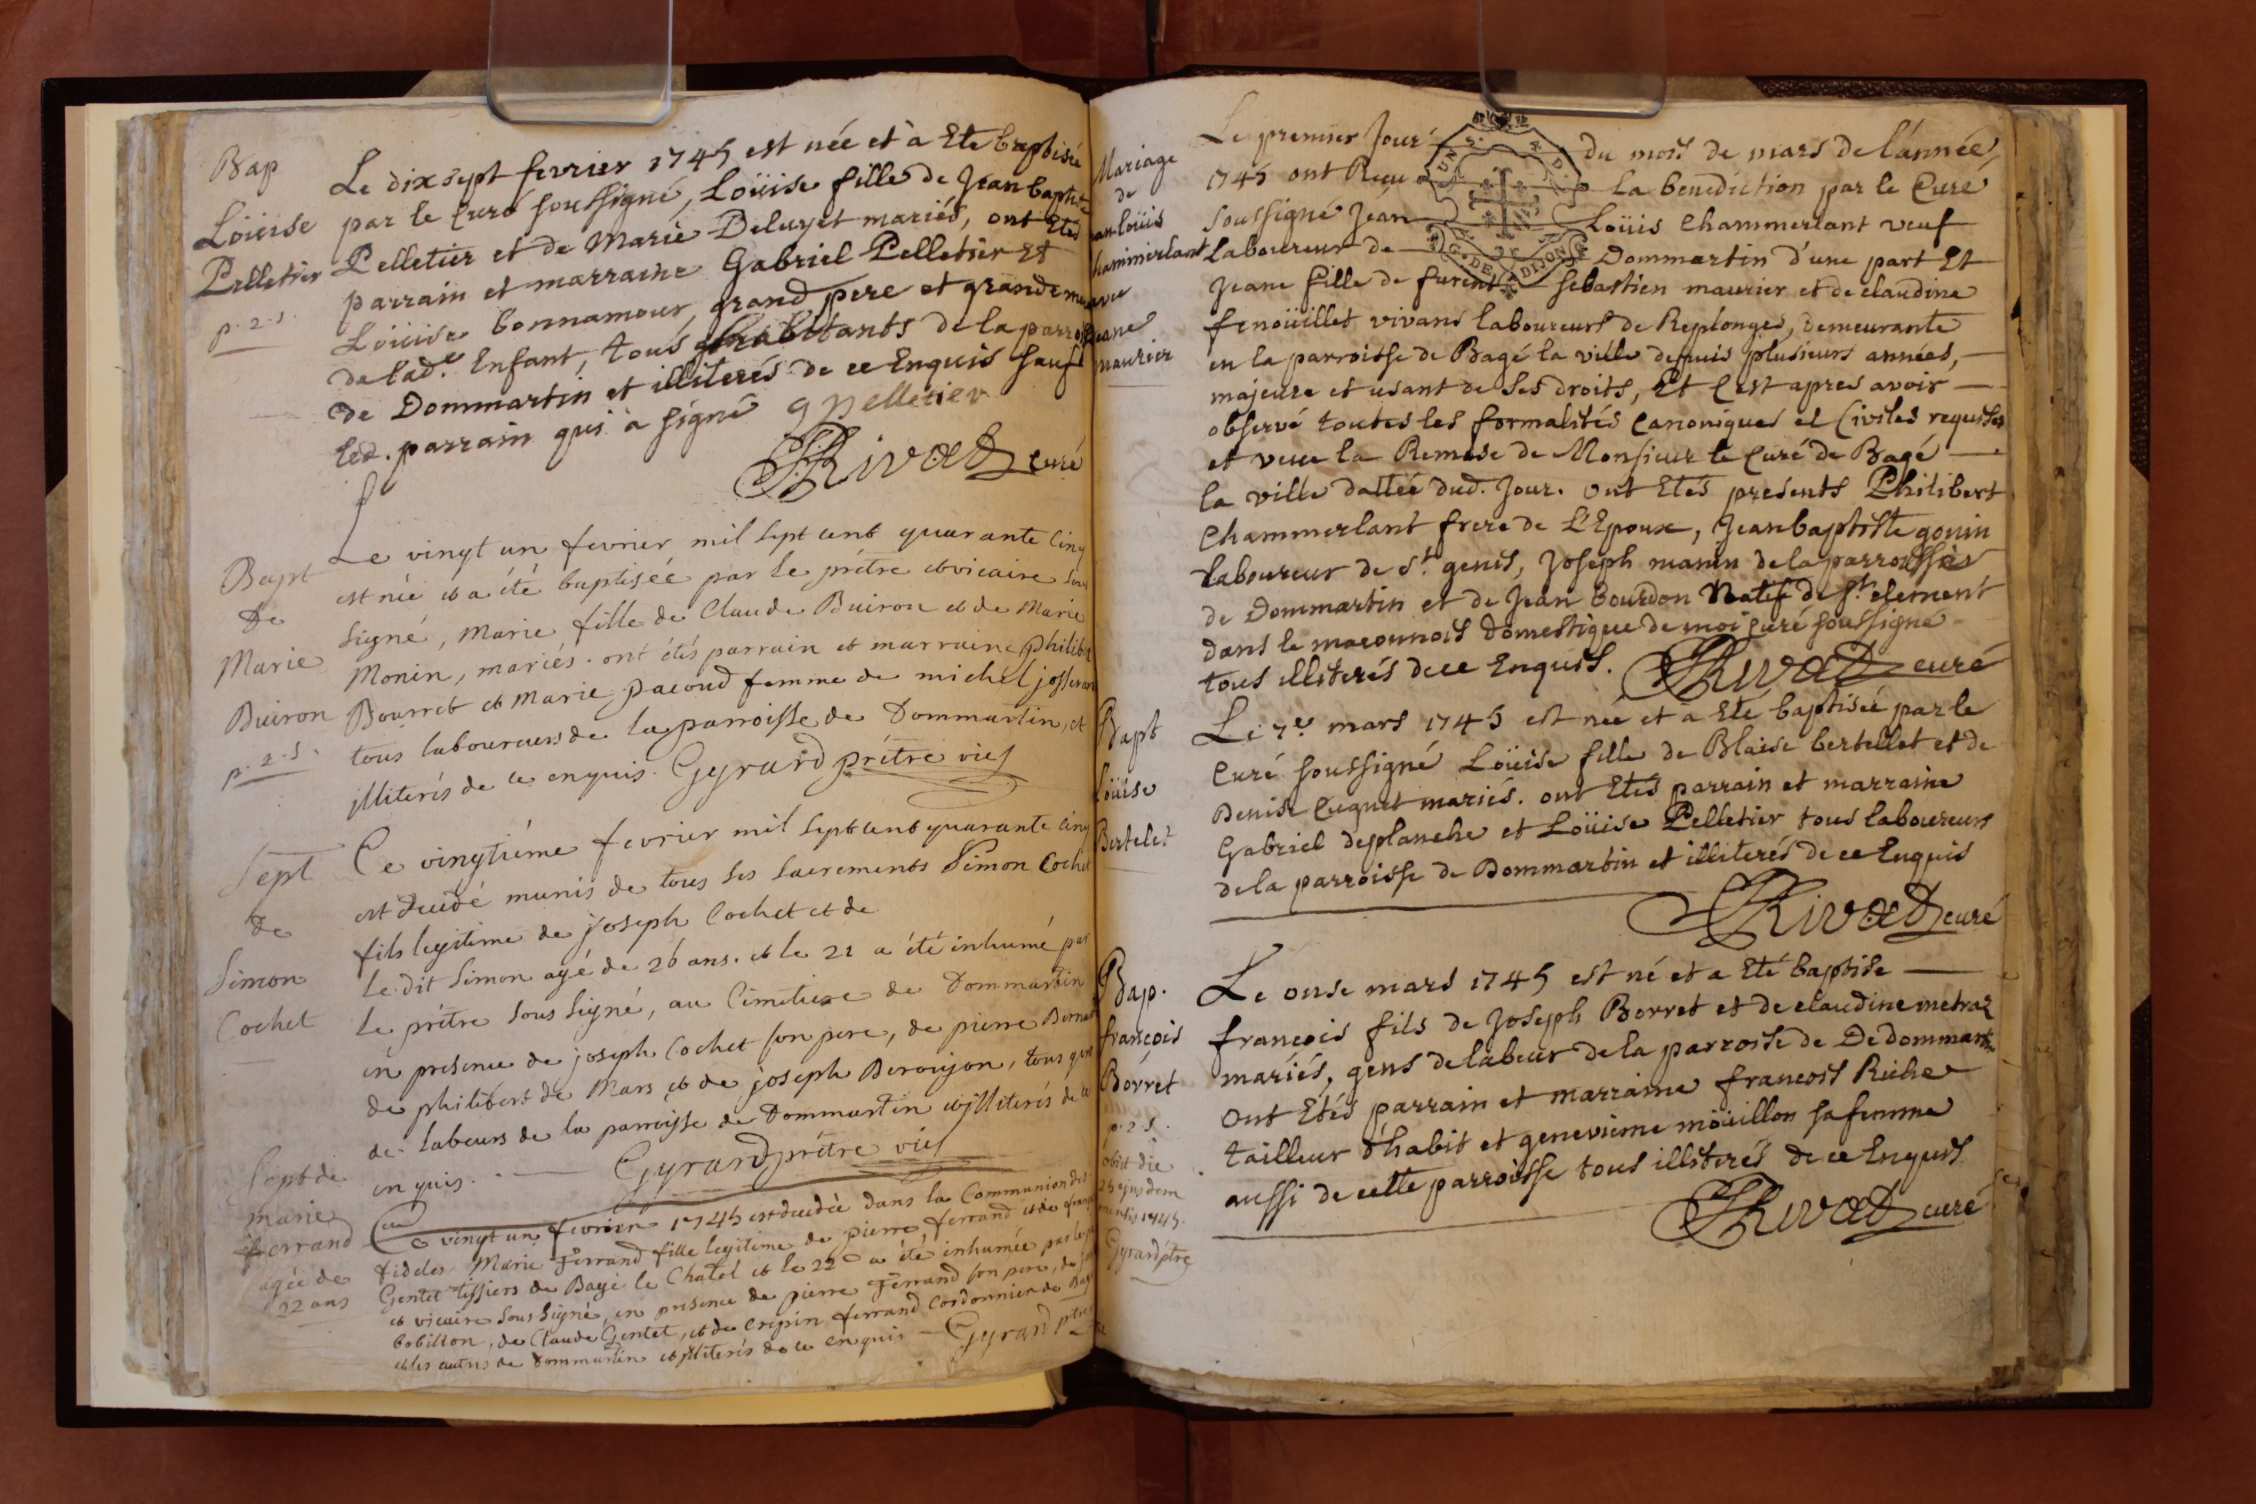 Bap
Loüise
Pelletier
p. 2. s.
Le dix sept fevrier 1745 est née et à Eté baptisée
par le Curé soussigné, Loüise fille de Jean baptiste
Pelletier et de Marie Deluyet mariés, ont Etés
parrain et marraine Gabriel Pelletier et
Loüise bonnamour, grand pere et grande mere
de lad.e Enfant, tous habitants de la parroisse
de Dommartin et illiterés de ce Enquis sauf
led. parrain qui à signé g pelletier
Rivat curé
Bapt
De
Marie
Buiron
p. 2. s.
Le vingt un fevrier mil sept cent quarante Cinq
est née et a été baptisée par le prétre et vicaire sous
signé, Marie fille de Claude Buiron et de Marie
Monin, mariés. ont étés parrain et marraine Philibert
Bourret et Marie pacoud femme de michel josserand
tous laboureurs de la parroisse de Dommartin, et
illiterés de ce enquis. Gyrard prétre vic
Sept
de
Simon
Cochet
Ce vingtiéme fevrier mil sept cent quarante cinq
est decedé munis de tous ses sacrements Simon Cochet
fils legitime de joseph Cochet et de
le dit Simon agé de 26 ans. et le 21 a été inhumé par
le prétre sous signé, au Cimetiere de Dommartin
en presence de joseph Cochet son pere, de pierre
de philibert de Mars et de joseph Beroujon, tous gens
de labeurs de la parroisse de Dommartin et illiterés de ce
enquis. Gyrard prétre vic
Sept de
marie
ferrand
agée de
22 ans
Ce vingt un fevrier 1745 est decedée dans la Communion des
fideles Marie Ferrand fille legitime de pierre ferrand et de
Gentet tissiers de Bagé le Chatel et le 22 a été inhumée par le
et vicaire sous signé, en presence de pierre Ferrand son pere, de
bobillon, de Claude Gentet, et de Crepin ferrand Cordonnier de Bagé
et les autres de Dommartin et illiterés de ce enquis Gyrard
Mariage
de
jean loüis
chammerlant
avec
jeane
maurier
Le premier Jour du mois de mars de l'année
1745 ont Recu la benediction par le Curé
soussigné Jean Loüis Chammerlant veuf
Laboureur de Dommartin d'une part Et
Jeane fille de furent sebastien maurier et de claudine
fenoüillet vivans laboureurs de Replonges, demeurante
en la parroisse de Bagé la ville depuis plusieurs années,
majeure et usant de ses droits, Et C'est apres avoir
observé toutes les formalités Canoniques et Civiles requises
et veue la Remise de Monsieur le Curé de Bagé
la ville dattée dud. Jour. ont Etés presents Philibert
Chammerlant frere de L'Epoux, Jean baptiste gonin
laboureur de St. genis, Joseph manin de la parroisse
de Dommartin et de Jean bourdon Natif de St. clement
dans le maconnois domestique de moi curé soussigné
tous illiterés de ce Enquis. Rivat curé
Bapt
Loüise
Bertelet
Le 7e mars 1745 est née et à Eté baptisée par le
Curé soussigné Loüise fille de Blaise bertellet et de
Denise Cuguet mariés. ont Etés parrain et marraine
Gabriel deplanche et Loüise Pelletier tous laboureurs
de la parroisse de Dommartin et illiterés de ce Enquis
Rivat curé
Bap.
francois
Borret
p. 2. s.
obiit die
25 ejusdem
mensis 1745.
Gyrard ptre
Le onse mars 1745 est né et a Eté baptise
francois fils de Joseph Borret et de claudine metraz
mariés, gens de labeur de la parroisse de De dommartin
ont Etés parrain et marraine francois Riche
tailleur d'habit et genevieme moüillon sa femme
aussi de cette parroisse tous illiterés de ce Enquis
Rivat curé